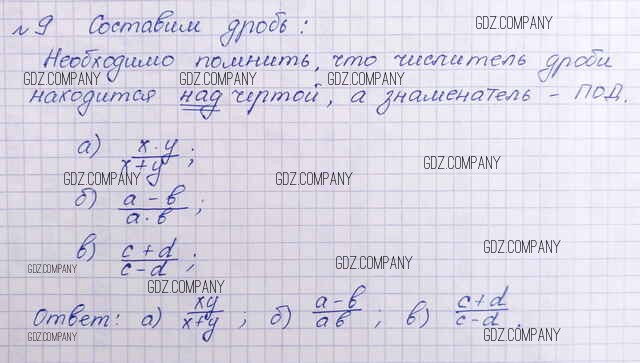 №9 Составим дробь: GDZ.COMPANY
Необходимо помнить, что числитель дроби
GDZ.COMPANY GDZ.COMPANY GDZ.COMPANY
находится над чертой, а знаменатель - под.
а) x·y / x+y ;
GDZ.COMPANY
GDZ.COMPANY GDZ.COMPANY
б) a-b / a·b ;
в) c+d / c-d ;
GDZ.COMPANY
GDZ.COMPANY
GDZ.COMPANY
GDZ.COMPANY
Ответ: а) xy / x+y ; б) a-b / ab ; в) c+d / c-d .
GDZ.COMPANY GDZ.COMPANY